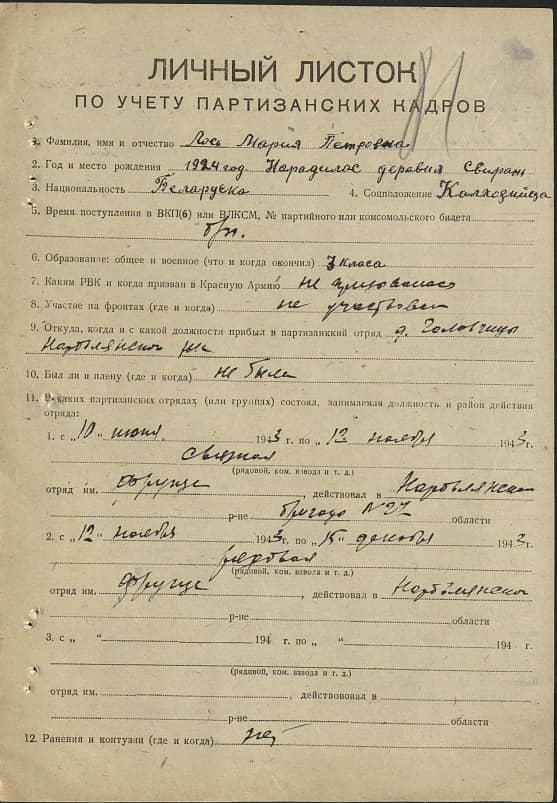 ЛИЧНЫЙ ЛИСТОК
ПО УЧЕТУ ПАРТИЗАНСКИХ КАДРОВ
1. Фамилия, имя и отчество Лось Мария Петровна
2. Год и место рождения 1924 год. Нарадилас деравня Свирань
3. Национальность Беларуска 4. Соцположение Калхозница
5. Время поступления в ВКП(б) или ВЛКСМ, № партийного или комсомольского билета
б/п.
6. Образование: общее и военное (что и когда окончил) 7 класа
7. Каким РВК и когда призван в Красную Армию не призывалась
8. Участие на фронтах (где и когда) не участвовал
9. Откуда, когда и с какой должности прибыл в партизанкий отряд д. Головчицы
10. Был ли в плену (где и когда) не была
11. В каких партизанских отрядах (или группах) состоял, занимаемая должность и район действия
отряда:
1. с „10" июня 1943 г. по „12 ноября 1943 г.
связная
(рядовой, ком. взвода и т. д.)
отряд им. Фрунзе, действовал в
р-не бригада N 27 области
2. с „12" ноября 1943 г. по „15" декабря 1943 г.
рядовая
(рядовой, ком. взвода и т. д.)
отряд им. Фрунзе, действовал в
р-не области
3. с „ " 194 г. по „ " 194 г.
(рядовой, ком. взвода и т. д.)
отряд им. , действововал в
р-не области
12. Ранения и контузии (где и когда) нет